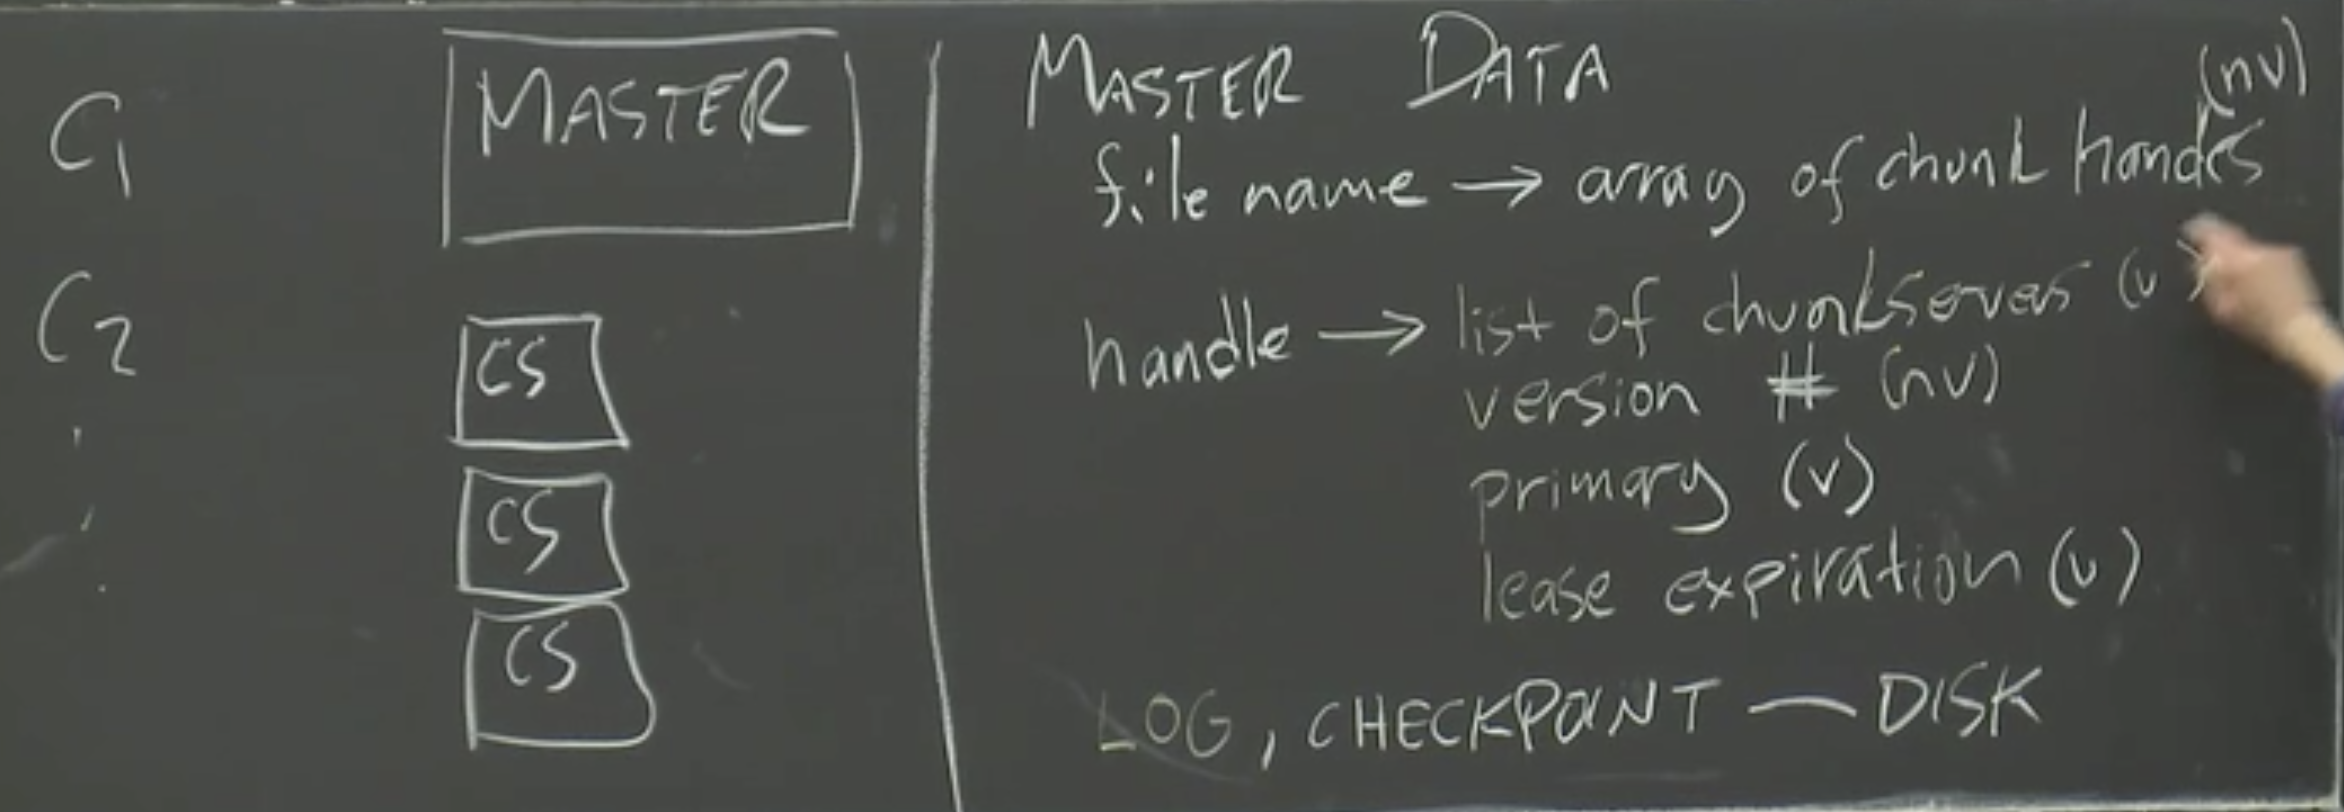 C1
C2
MASTER
CS
CS
CS
MASTER DATA
(nv)
file name → array of chunk handles
handle → list of chunkservers (v)
version # (nv)
primary (v)
lease expiration (v)
LOG, CHECKPOINT — DISK